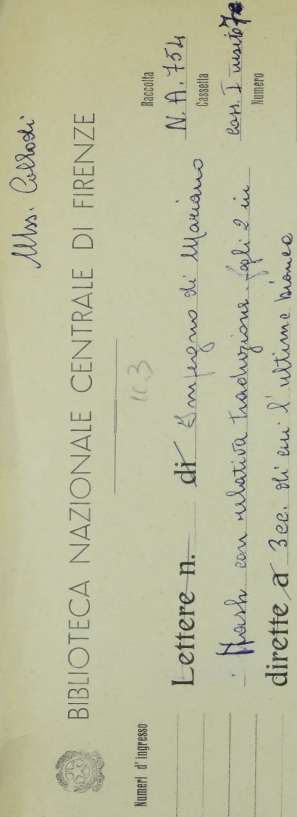 Mss. Collodi
BIBLIOTECA NAZIONALE CENTRALE DI FIRENZE
n. 3
Raccolta
N. A. 754
Cassetta
Cass. I inserto 7
Numero
Numeri d'ingresso
Lettere n. di Impegno di Mariano
Hash con relativa traduzione fogli 2 in
dirette a 3 cc. di cui l'ultima bianca